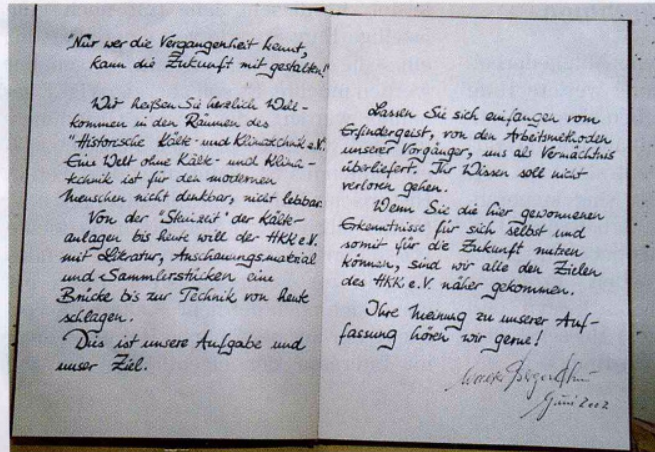 "Nur wer die Vergangenheit kennt,
kann die Zukunft mit gestalten!"
Wir heißen Sie herzlich Will-
kommen in den Räumen des
"Historische Kälte- und Klimatechnik e.V."
Eine Welt ohne Kälte- und Klima-
technik ist für den modernen
Menschen nicht denkbar, nicht lebbar.
Von der "Steinzeit" der Kälte-
anlagen bis heute will der HKK e.V.
mit Literatur, Anschauungsmaterial
und Sammlerstücken eine
Brücke bis zur Technik von heute
schlagen.
Dies ist unsere Aufgabe und
unser Ziel.
Lassen Sie sich einfangen vom
Erfindergeist, von den Arbeitsmethoden
unserer Vorgänger, uns als Vermächtnis
überliefert. Ihr Wissen soll nicht
verloren gehen.
Wenn Sie die hier gewonnenen
Erkenntnisse für sich selbst und
somit für die Zukunft nutzen
können, sind wir alle den Zielen
des HKK e.V. näher gekommen.
Ihre Meinung zu unserer Auf-
fassung hören wir gerne!
Juni 2002